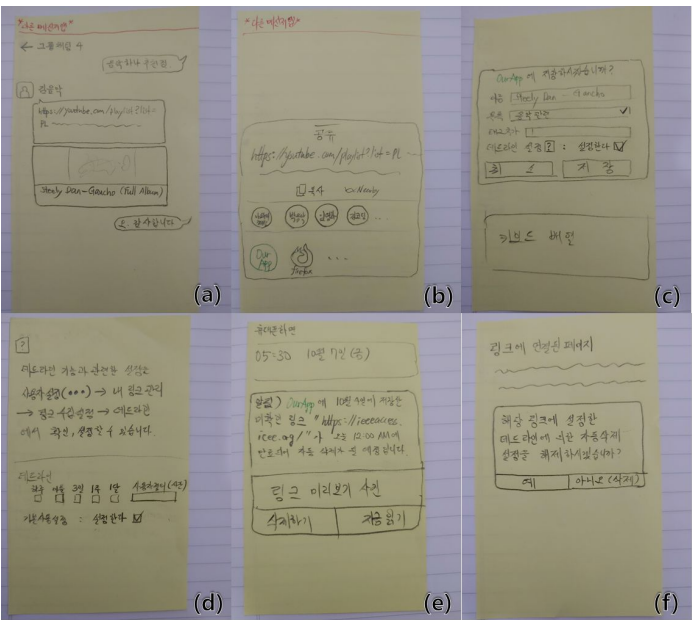 *다른 메신저앱*
← 그룹채팅 4
음악 하나 추천좀
A
https://youtube.com/playlist?list=
PL
Steely Dan-Gaucho (Full Album)
오, 감사합니다
(a)
*다른 메신저앱*
공유
https://youtube.com/playlist?list=PL
복사
Nearby
...
Our
App
firefox
...
(b)
OurApp에 저장하시겠습니까?
이름
Steely Dan - Gaucho
목록
음악 추천
태그추가
데드라인 설정 ? : 설정한다
취소
저장
키보드 배열
(c)
?
데드라인 기능과 관련한 설정은
사용자설정(•••) → 내 링크 관리
→ 링크 수집설정 → 데드라인
에서 확인, 설정할 수 있습니다.
데드라인
하루
3일
1주
1달
기본사용설정 : 설정한다
(d)
휴대폰화면
05:30 10월 7일 (금)
알림) OurApp에 10월 4일에 저장한
미확인 링크 "https://ieeeaccess.
ieee.org/"가 오늘 12:00 AM에
만료되어 자동 삭제가 될 예정입니다.
링크 미리보기 사진
삭제하기
지금 읽기
(e)
링크에 연결된 페이지
해당 링크에 설정한
데드라인에 의한 자동삭제
설정을 해제하시겠습니까?
예
아니오 (삭제)
(f)